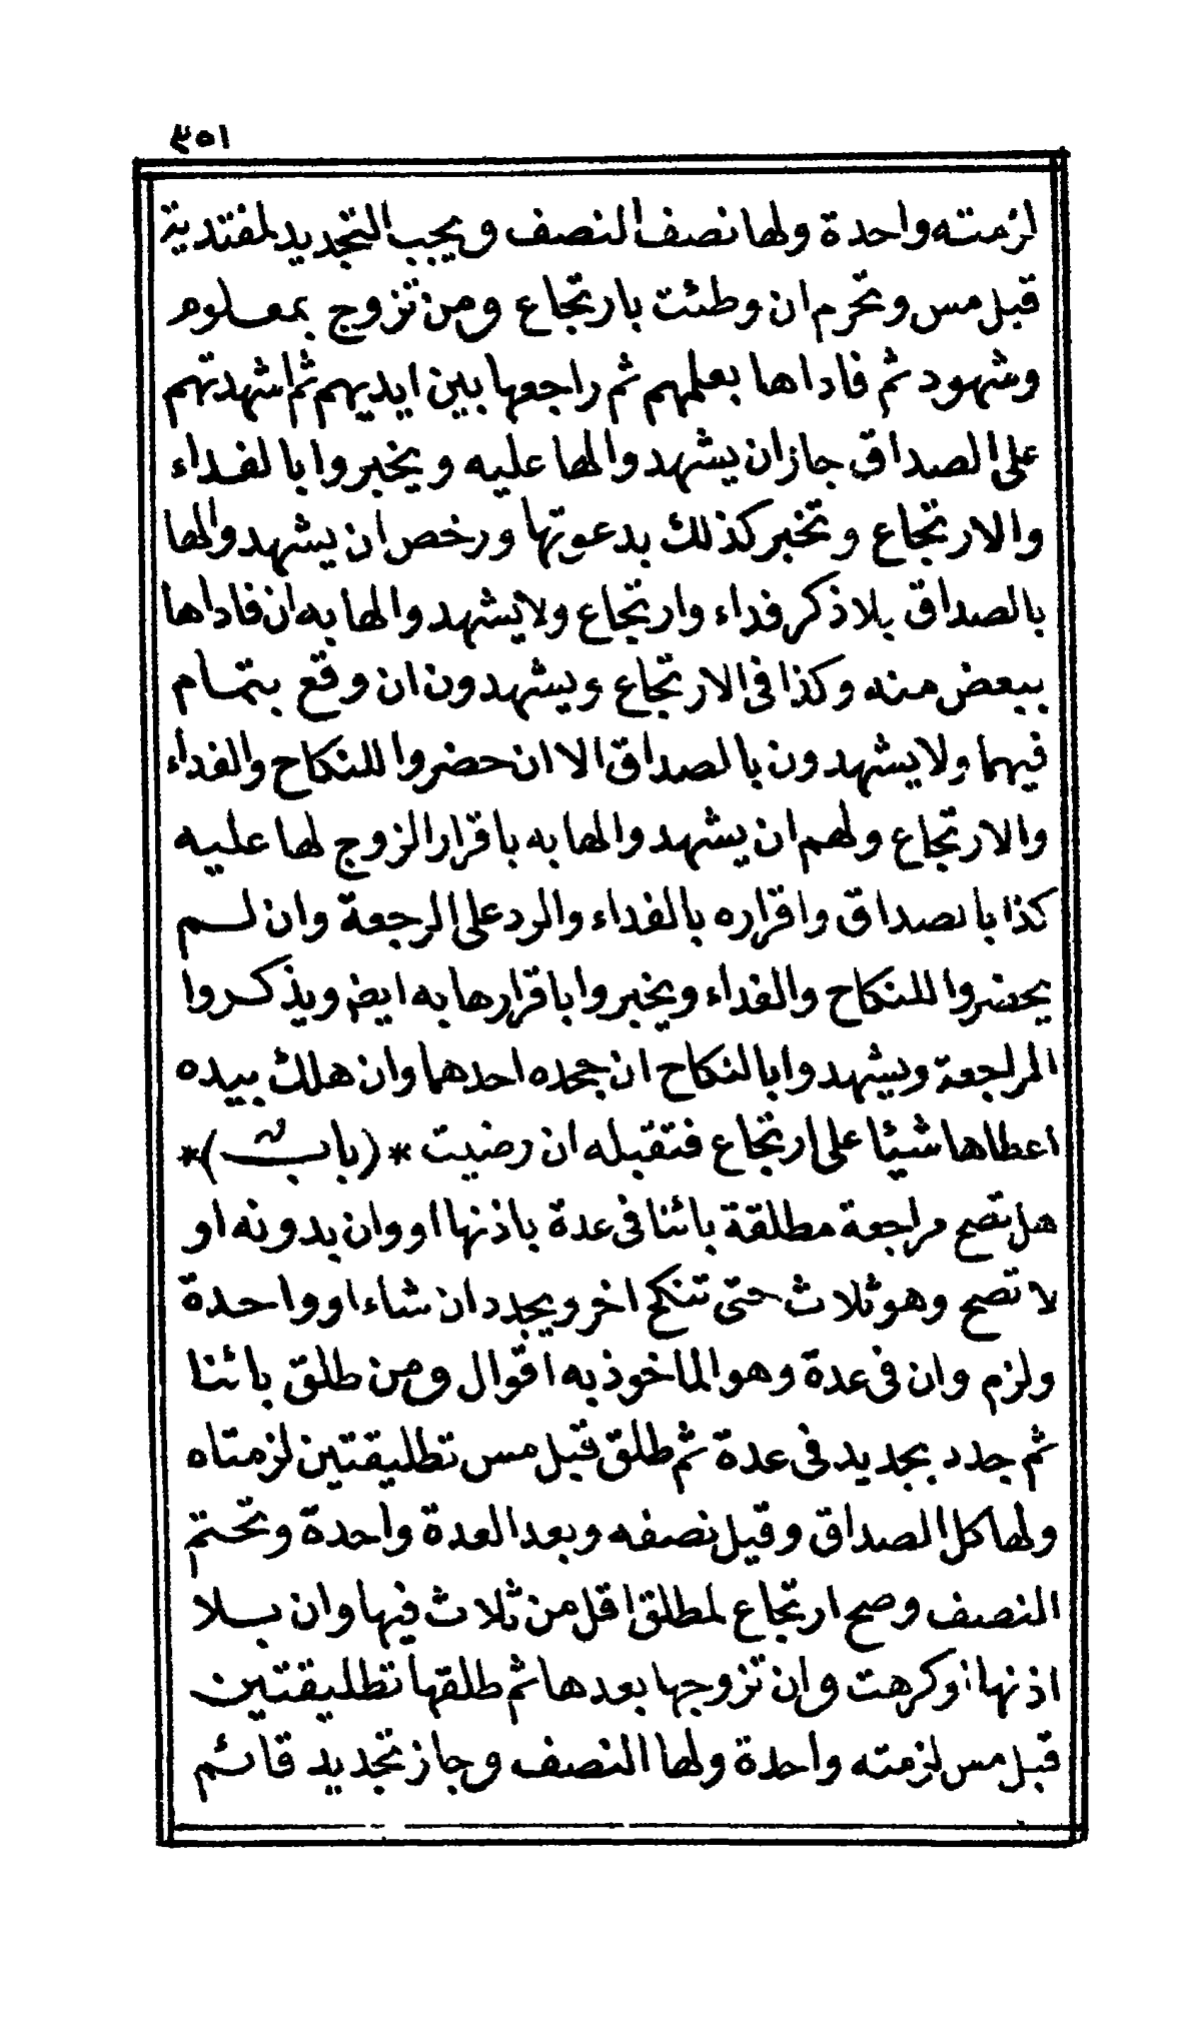 ٤٥١
لزمته واحدة ولها نصف النصف ويجب التجديد لمفتدية
قبل مس وتحرم ان وطئت بارتجاع ومن تزوج بمعلوم
وشهود ثم فاداها بعلمهم ثم راجعها بين ايديهم ثم اشهدتهم
على الصداق جاز ان يشهدوا لها عليه ويخبروا بالفداء
والارتجاع وتخبر كذلك بدعوتها ورخص ان يشهدوا لها
بالصداق بلا ذكر فداء وارتجاع ولا يشهدوا لها به ان فاداها
ببعض منه وكذا فى الارتجاع ويشهدون ان وقع بتمام
فيهما ولا يشهدون بالصداق الا ان حضروا للنكاح والفداء
والارتجاع ولهم ان يشهدوا لها به باقرار الزوج لها عليه
كذا بالصداق واقراره بالفداء والرد على الرجعة وان لم
يحضروا للنكاح والفداء ويخبروا باقرارها به ايض ويذكروا
المراجعة ويشهدوا بالنكاح ان جحده احدهما وان هلك بيده
اعطاها شيئا على ارتجاع فتقبله ان رضيت * (باب) *
هل تصح مراجعة مطلقة بائنا فى عدة باذنها او وان بدونه او
لا تصح وهو ثلاث حتى تنكح اخر ويجدد ان شاء او واحدة
ولزم وان فى عدة وهو الماخوذ به اقوال ومن طلق بائنا
ثم جدد بجديد فى عدة ثم طلق قبل مس تطليقتين لزمتاه
ولها كل الصداق وقيل نصفه وبعد العدة واحدة وتحتم
النصف وصح ارتجاع لمطلق اقل من ثلاث فيها وان بلا
اذنها او كرهت وان تزوجها بعدها ثم طلقها تطليقتين
قبل مس لزمته واحدة ولها النصف وجاز تجديد قائم